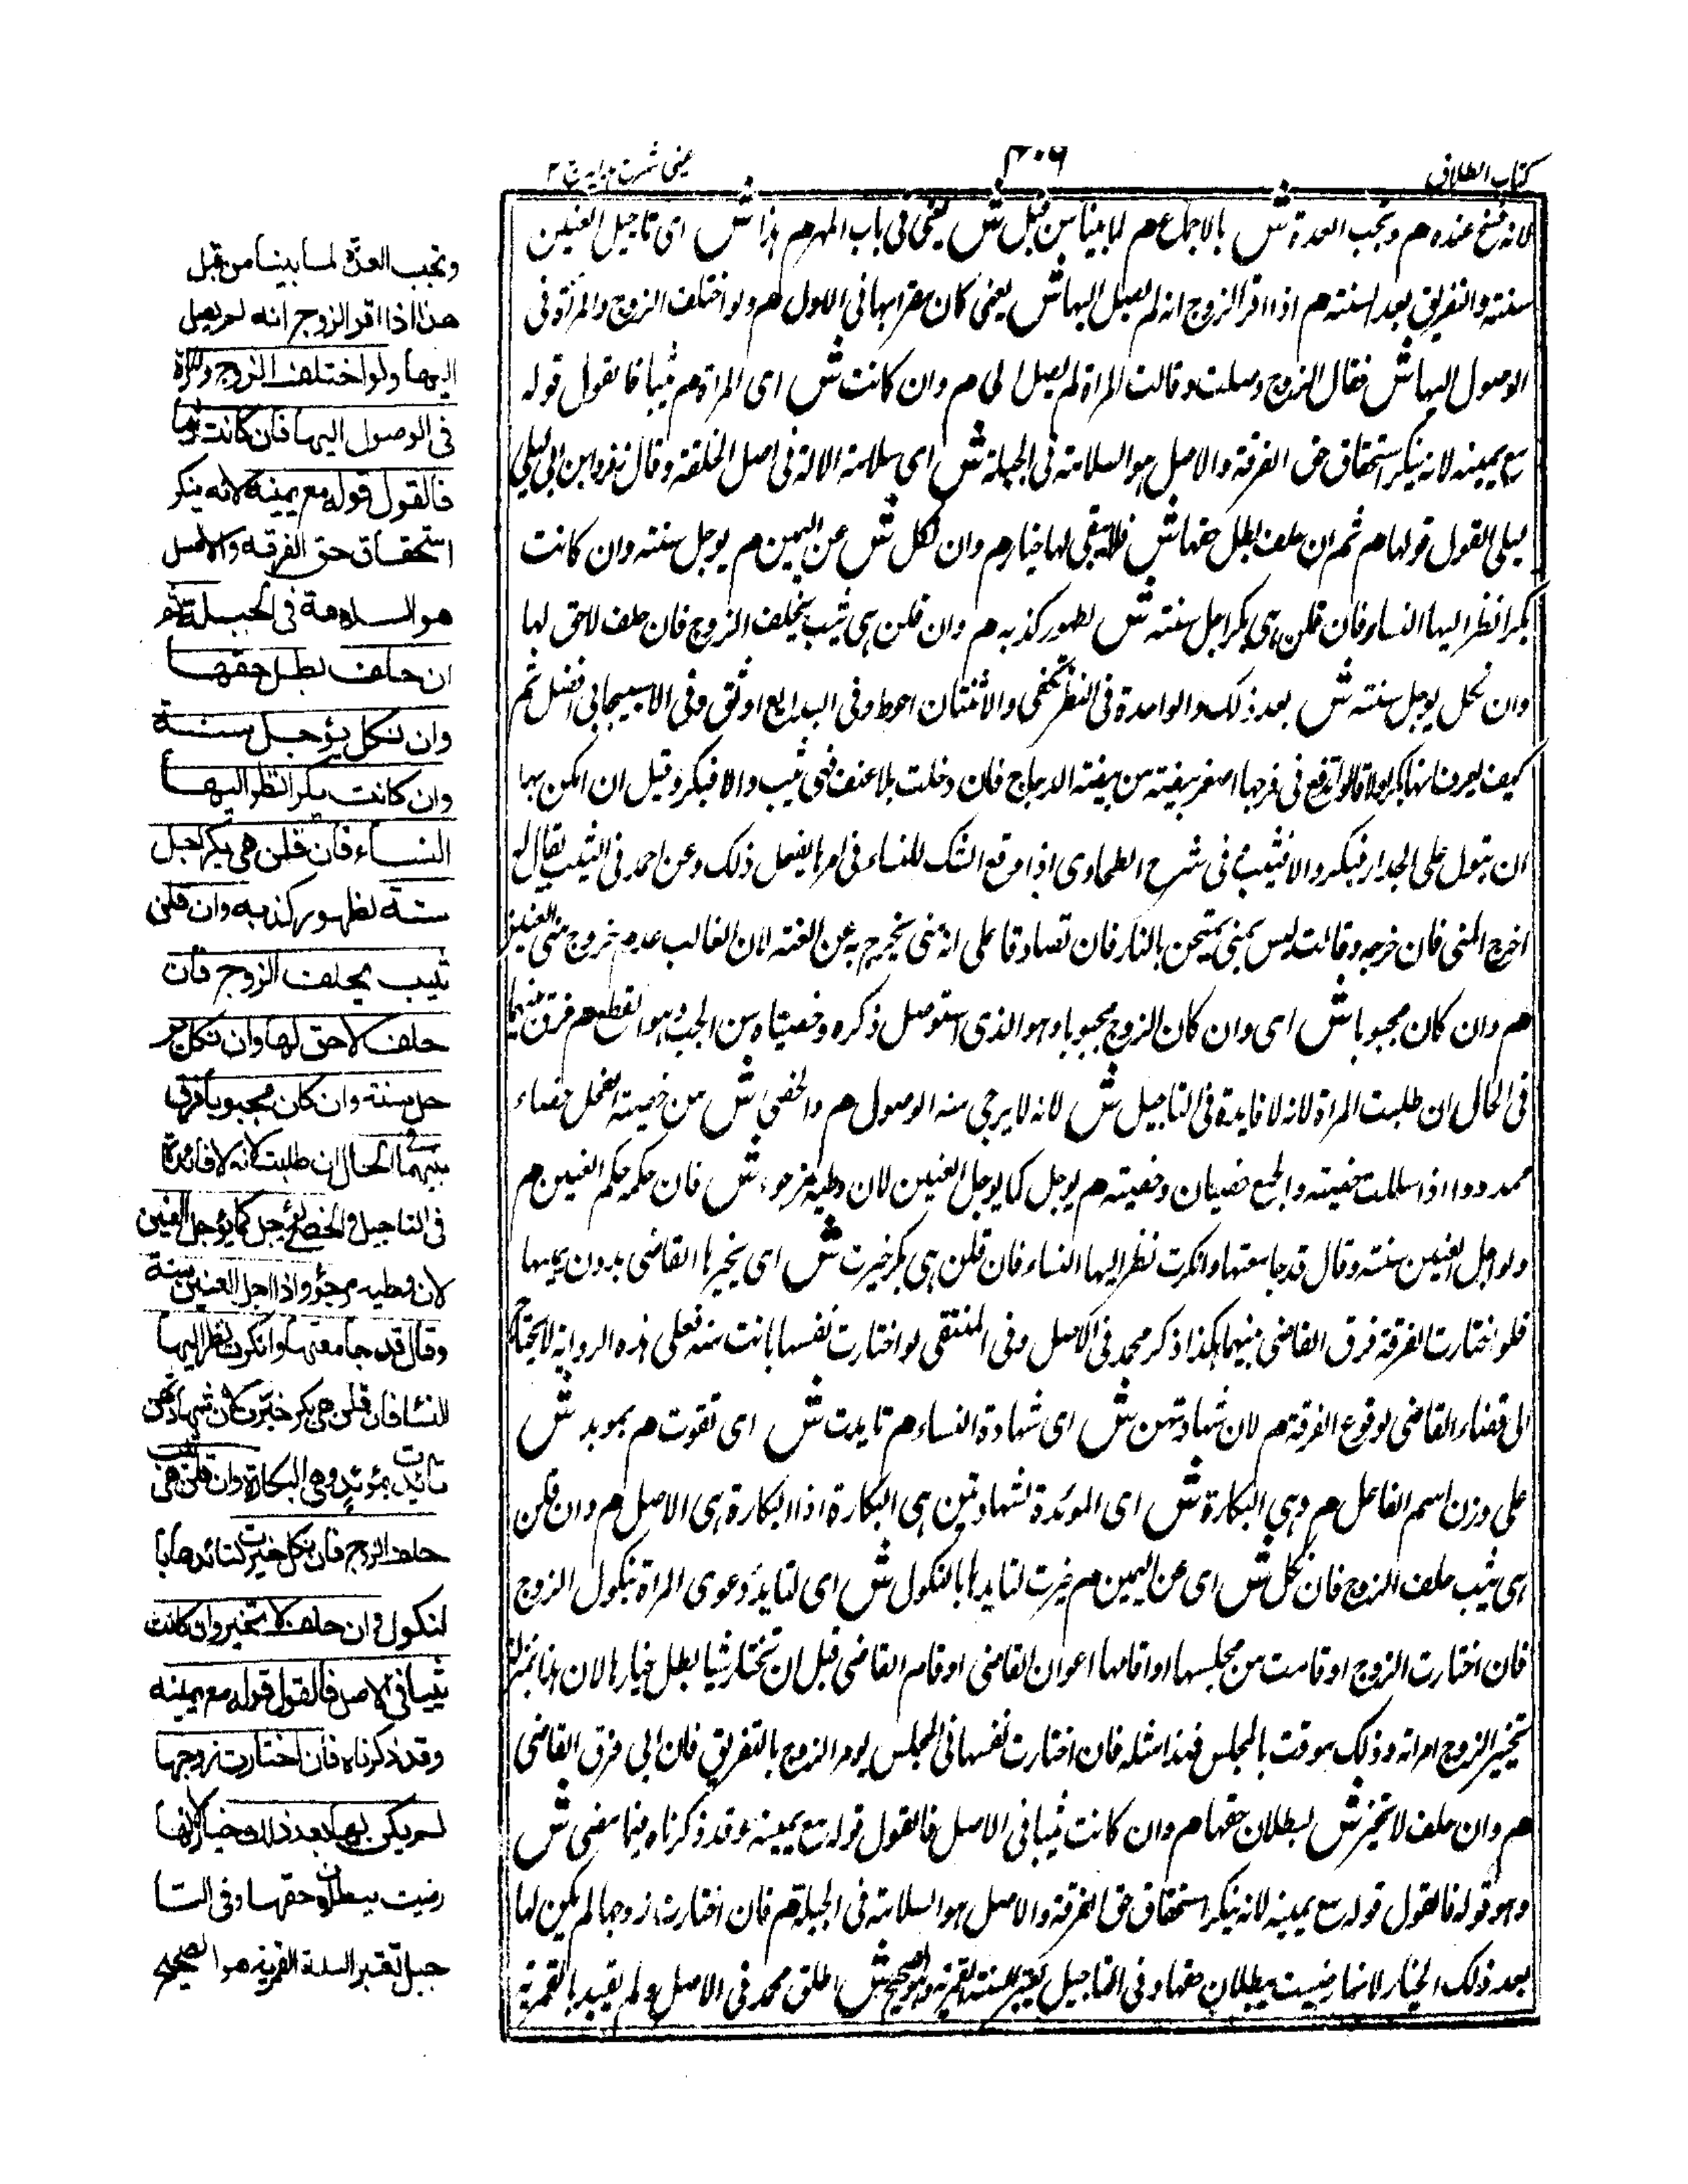 كتاب الطلاق
٤٠٦
عینی شرح ہدایہ ج ٢
لانه فسخ عنده هم وتجب العدة ش بالاجماع هم لما بينا من قبل ش يعنى فى باب المهر هم هذا ش اى تاجيل العنين
سنة والتفريق بعد السنة هم اذا اقر الزوج انه لم يصل اليها ش يعنى كان مقرا بها فى الاول هم ولو اختلف الزوج والمراة فى
الوصول اليها ش فقال الزوج وصلت وقالت المراة لم يصل الى هم وان كانت ش اى المراة هم ثيبا فالقول قوله
مع يمينه لانه ينكر استحقاق حق الفرقة والاصل هو السلامة فى الجبلة ش اى سلامة الالة فى اصل الخلقة وقال زفر وابن ابى ليلى
ليلى القول قولها هم ثم ان حلف بطل حقها ش فلا يبقى لها خيار هم وان نكل ش عن اليمين هم يوجل سنة وان كانت
بكرا نظر اليها النساء فان قلن هى بكر اجل سنة ش لظهور كذبه هم وان قلن هى ثيب يحلف الزوج فان حلف لا حق لها
وان نكل يوجل سنة ش بعد ذلك والواحدة فى النظر تكفى والاثنتان احوط وفى البدايع اوثق وفى الاسبيجابى افضل ثم
كيف يعرف انها بكر اولا قالوا تدفع فى فرجها اصغر بيضة من بيضة الدجاج فان دخلت بلا عنف فهى ثيب والا فبكر وقيل ان امكن بها
ان تبول على الجدار فبكر والا فثيب فى شرح الطحاوى اذا وقع الشك للنساء فى امرها يفعل ذلك وعن احمد فى الثيب يقال له
اخرج المنى فان خرجه وقالت ليس بمنى يمتحن بالنار فان تصادقا على انه منى يخرج به عن العنة لان الغالب عدم خروج منى العنين
هم وان كان مجبوبا ش اى وان كان الزوج مجبوبا وهو الذى استوصل ذكره وخصيتاه من الجب وهو القطع هم فرق بينهما
فى الحال ان طلبت المراة لانه لا فايدة فى التاجيل ش لانه لا يرجى منه الوصول هم والخصى ش من خصيت الفحل خصاء
ممدودا اذا سللت خصيته والجمع خصيان وخصيته هم يوجل كما يوجل العنين لان وطيه مرجوء ش فان حكمه حكم العنين هم
ولو اجل العنين سنة وقال قد جامعتها وانكرت نظر اليها النساء فان قلن هى بكر خيرت ش اى يخيرها القاضى بدون يمينها
فلو اختارت الفرقة فرق القاضى بينهما هكذا ذكر محمد فى الاصل وفى المنتقى لو اختارت نفسها بانت منه فعلى هذه الرواية لا يحتاج
الى قضاء القاضى لوقوع الفرقة هم لان شهادتهن ش اى شهادة النساء هم تايدت ش اى تقوت هم بمويد ش
على وزن اسم الفاعل هم وهى البكارة ش اى المويدة لشهادتهن هى البكارة اذ البكارة هى الاصل هم وان قلن
هى ثيب حلف الزوج فان نكل ش اى عن اليمين هم خيرت لتايدها بالنكول ش اى لتايد دعوى المراة بنكول الزوج
فان اختارت الزوج او قامت من مجلسها او اقامها اعوان القاضى او قام القاضى قبل ان تختار شيا بطل خيارها لان هذا بمنزلة
تخيير الزوج امراته وذلك موقت بالمجلس فهذا مثله فان اختارت نفسها فى المجلس يومر الزوج بالتفريق فان ابى فرق القاضى
هم وان حلف لا تخير ش لبطلان حقها هم وان كانت ثيبا فى الاصل فالقول قوله مع يمينه وقد ذكرناه فيما مضى ش
وهو قوله فالقول قوله مع يمينه لانه ينكر استحقاق حق الفرقة والاصل هو السلامة فى الجبلة هم فان اختارت زوجها لم يكن لها
بعد ذلك الخيار لانها رضيت ببطلان حقها وفى التاجيل يعتبر السنة القمرية وهو الصحيح ش اطلق محمد فى الاصل ولم يقيد بالقمرية
وتجب العدة لما بينا من قبل
هذا اذا اقر الزوج انه لم يصل
اليها ولو اختلف الزوج والمرأة
فى الوصول اليها فان كانت ثيبا
فالقول قوله مع يمينه لانه ينكر
استحقاق حق الفرقة والاصل
هو السلامة فى الجبلة ثم
ان حلف بطل حقها
وان نكل يؤجل سنة
وان كانت بكرا نظر اليها
النساء فان قلن هى بكر اجل
سنة لظهور كذبه وان قلن
ثيب يحلف الزوج فان
حلف لا حق لها وان نكل يؤ
جل سنة وان كان مجبوبا فرق
بينهما فى الحال ان طلبت لانه لا فائدة
فى التاجيل والخصى يؤجل كما يؤجل العنين
لان وطيه مرجو واذا اجل العنين سنة
وقال قد جامعتها وانكرت نظر اليها
النساء فان قلن هى بكر خيرت لان شهادتهن
تأيدت بمؤيد وهى البكارة وان قلن هى ثيب
حلف الزوج فان نكل خيرت لتائدها با
لنكول وان حلف لا تخير وان كانت
ثيبا فى الاصل فالقول قوله مع يمينه
وقد ذكرناه فان اختارت زوجها
لم يكن لها بعد ذلك خيار لانها
رضيت ببطلان حقها وفى التا
جيل تعتبر السنة القمرية هو الصحيح